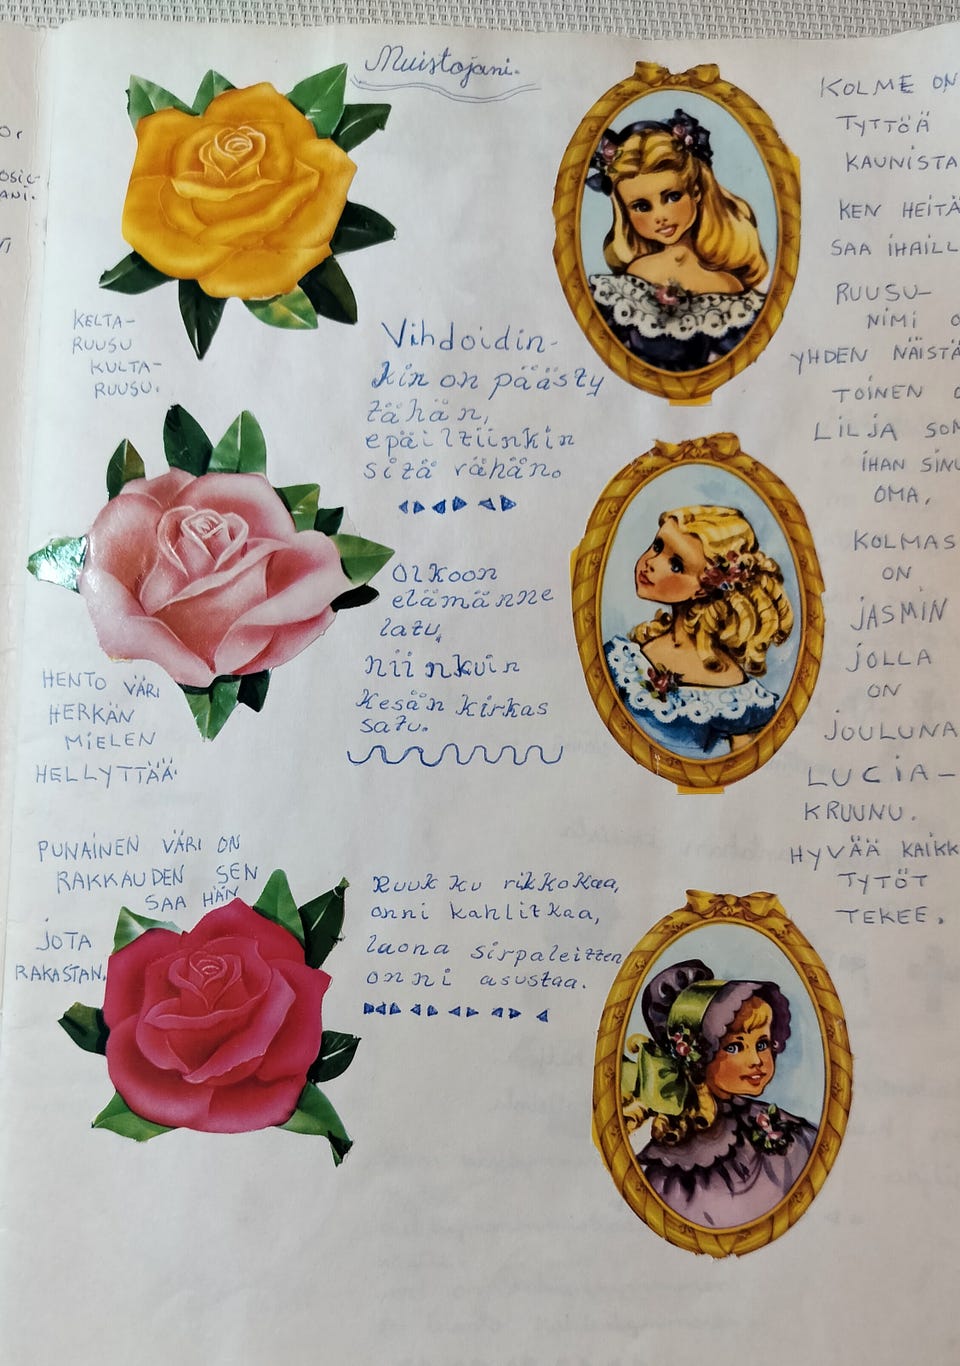 Muistojani.
KELTA-
RUUSU
KULTA-
RUUSU.
HENTO VÄRI
HERKÄN
MIELEN
HELLYTTÄÄ.
PUNAINEN VÄRI ON
RAKKAUDEN SEN
SAA HÄN
JOTA
RAKASTAN.
Vihdoidin-
kin on päästy
tähän,
epäiltiinkin
sitä vähän.
Olkoon
elämänne
latu,
niinkuin
Kesän kirkas
satu.
Ruukku rikkokaa,
onni kahlitkaa,
luona sirpaleitten
onni asustaa.
KOLME ON
TYTTÖÄ
KAUNISTA
KEN HEITÄ
SAA IHAILL
RUUSU-
NIMI O
YHDEN NÄISTÄ
TOINEN O
LILJA SOM
IHAN SINU
OMA,
KOLMAS
ON
JASMIN
JOLLA
ON
JOULUNA
LUCIA-
KRUUNU.
HYVÄÄ KAIKK
TYTÖT
TEKEE.